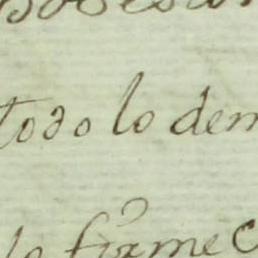 todo lo dem
lo firme c